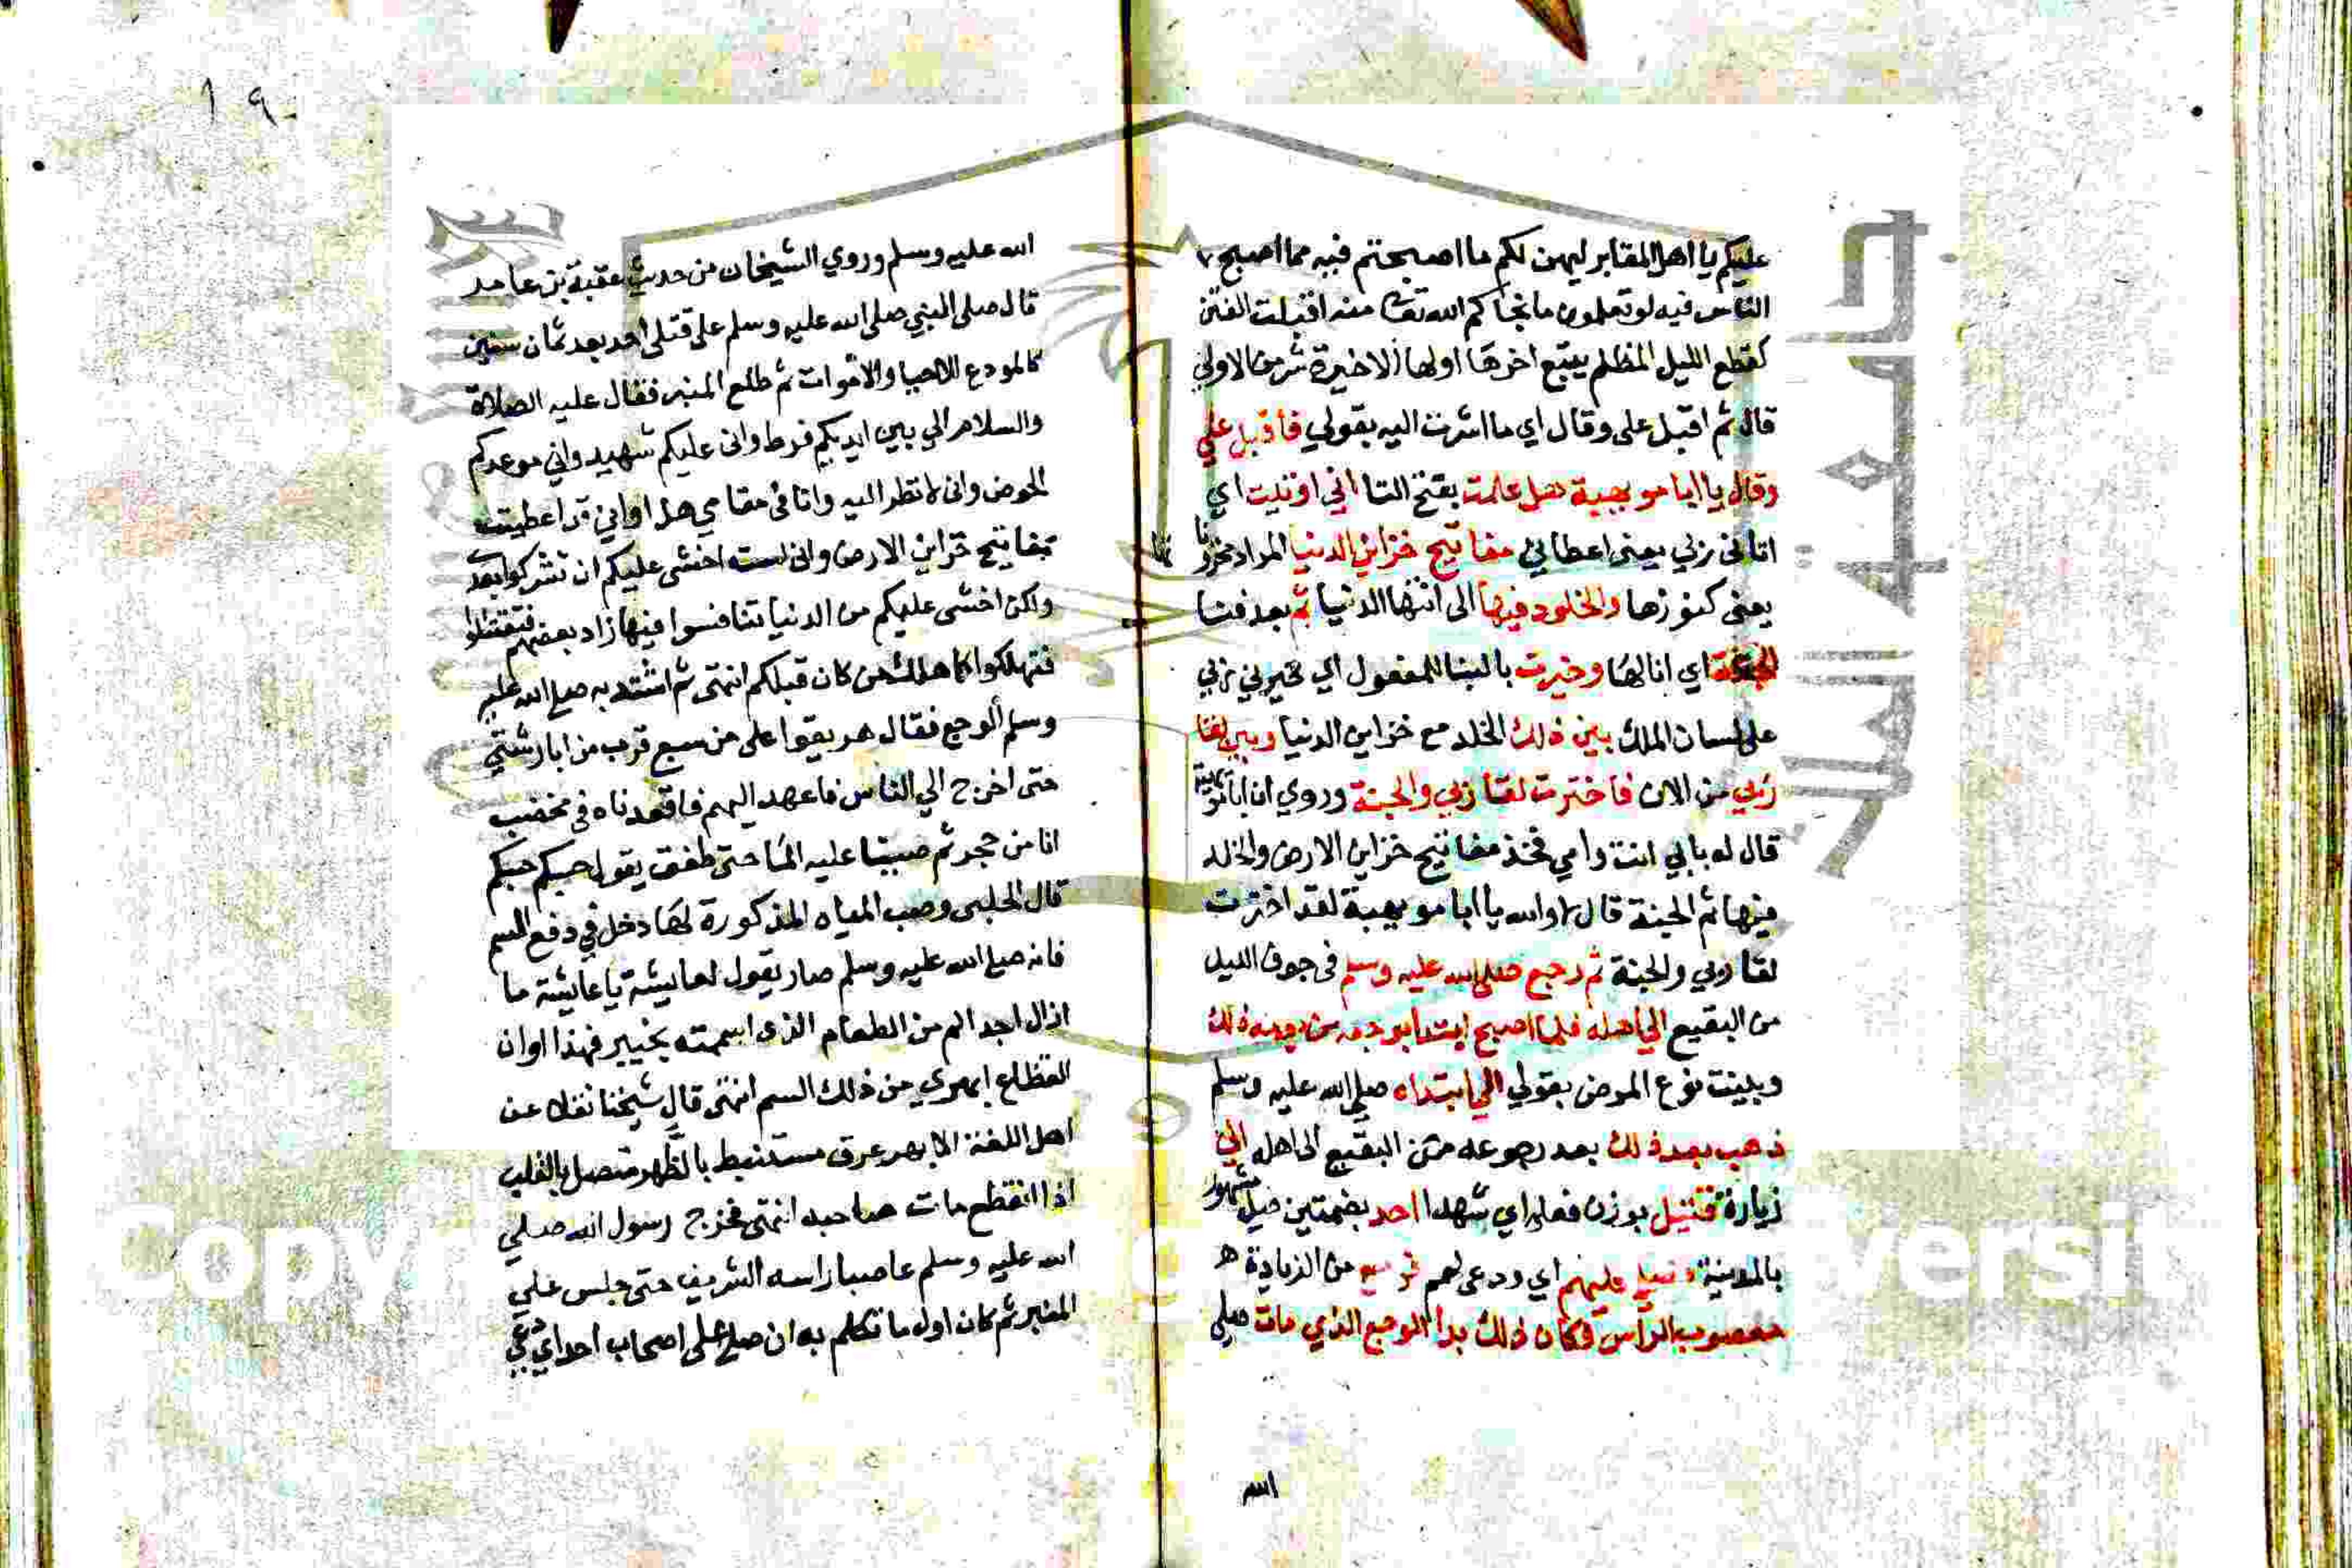 عليكم يا اهل المقابر ليهن لكم ما اصبحتم فيه مما اصبح
الناس فيه لو تعلمون ما نجاكم الله تعا منه اقبلت الفتن
كقطع الليل المظلم يتبع اخرها اولها الاخيرة شر من الاولي
قال ثم اقبل على وقال اي ما اشرت اليه بقولي فاقبل علي
وقال يا ابا مويهبة هل علمت بفتح التا اني اوتيت اي
اتاني ربي يعني اعطاني مفاتيح خزاين الدنيا المراد
يعني كنوزها والخلود فيها الى انتها الدنيا ثم بعد فنا
الجنة اي انالها وخيرت بالبنا للمفعول اي خيرني ربي
على لسان الملك بين ذلك الخلد مع خزاين الدنيا وبين لقا
ربي من الان فاخترت لقا ربي والجنة وروي ان ابا
قال له بابي انت وامي فخذ مفاتيح خزاين الارض والخلد
فيها ثم الجنة قال لا والله يا ابا مويهبة لقد اخترت
لقا ربي والجنة ثم رجع صلى الله عليه وسلم في جوف الليل
من البقيع الي اهله فلما اصبح ابتدا بوجعه من يومه ذلك
وبينت نوع المرض بقولي الي ابتداه صلى الله عليه وسلم
ذهب بعد ذلك بعد رجوعه من البقيع الى اهله الي
زيارة قتيل بوزن فعلى اي شهدا احد بضمتين جبل مشهور
بالمدينة فصلي عليهم اي ودعى لهم فرجع من الزيادة
معصوب الراس فكان ذلك بدا الوجع الذي مات صلى
الله
١٩
الله عليه وسلم وروي الشيخان من حديث عقبة بن عامر
قال صلى النبي صلى الله عليه وسلم على قتلى احد بعد ثمان سنين
كالمودع للاحيا والاموات ثم طلع المنبر فقال عليه الصلاة
والسلام اني بين ايديكم فرط واني عليكم شهيد واني موعدكم
الحوض واني لانظر اليه وانا في مقامي هذا واني قد اعطيت
مفاتيح خزاين الارض واني لست اخشى عليكم ان تشركوا بعدي
ولكن اخشى عليكم من الدنيا تتنافسوا فيها زاد بعضهم فتقتتلوا
فتهلكوا كما هلك من كان قبلكم انتهى ثم اشتد به صلى الله عليه
وسلم الوجع فقال هريقوا على من سبع قرب من ابار شتي
حتى اخرج الي الناس فاعهد اليهم فاقعدناه في مخضب
انا من حجر ثم صببنا عليه الما حتى طفق يقول حبكم حبكم
قال الحلبى وصب المياه المذكورة لها دخل في دفع السم
فانه صلى الله عليه وسلم صار يقول لعايشة يا عايشة ما
ازال اجد الم من الطعام الذي اسممته بخيبر فهذا اوان
انقطاع ابهري من ذلك السم انتهى قال شيخنا نقلا عن
اهل اللغة الابهر عرق مستنبط بالظهر متصل بالقلب
اذا انقطع مات صاحبه انتهى فخرج رسول الله صلي
الله عليه وسلم عاصبا راسه الشريف حتى جلس علي
المنبر ثم كان اول ما تكلم به ان صلى على اصحاب احد اي دعي